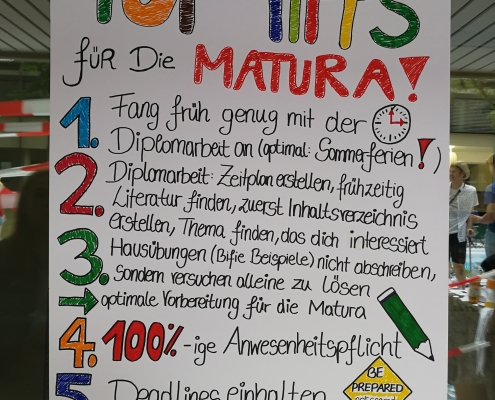 TOP TIPPS
für Die MATURA!
1. Fang früh genug mit der
Diplomarbeit an (optimal: Sommerferien!)
2. Diplomarbeit: Zeitplan erstellen, frühzeitig
Literatur finden, zuerst Inhaltsverzeichnis
erstellen, Thema finden, das dich interessiert
3. Hausübungen (Bifie Beispiele) nicht abschreiben,
sondern versuchen alleine zu lösen
→ optimale Vorbereitung für die Matura
4. 100%-ige Anwesenheitspflicht
5. Deadlines einhalten
BE
PREPARED